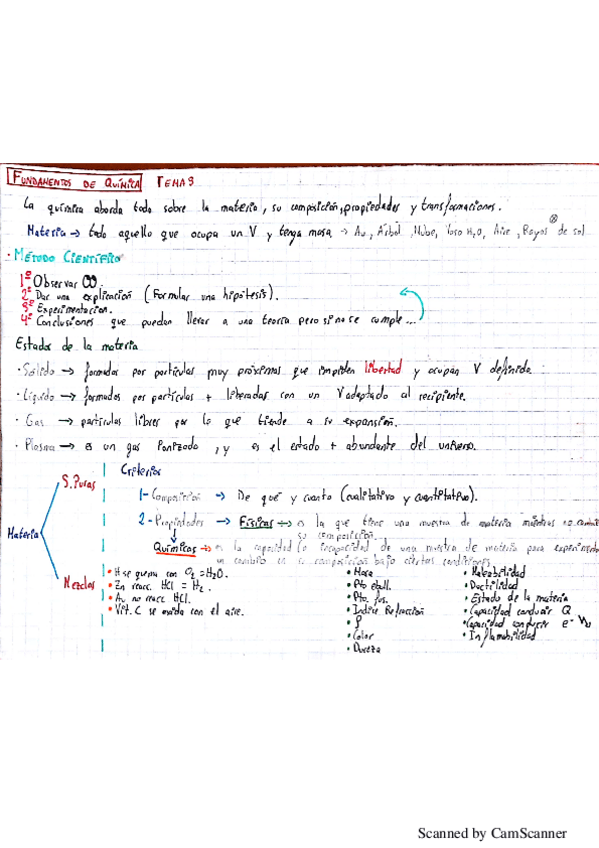 FUNDAMENTOS DE QUÍMICA TEMA 3
La química aborda todo sobre la materia, su composición, propiedades y transformaciones.
Materia → todo aquello que ocupa un V y tenga masa → Au, Árbol, Nube, Vaso H2O, Aire, Rayos de sol ⊗
· MÉTODO CIENTÍFICO
1º Observar
2º Dar una explicación (Formular una hipótesis).
3º Experimentacion.
4º Conclusiones que puedan llevar a una teoría pero si no se cumple...
Estados de la materia
· Sólido → formados por partículas muy próximas que impiden libertad y ocupan V definido.
· Líquido → formados por partículas + liberadas con un V adaptado al recipiente.
· Gas → partículas libres por lo que tiende a su expansión.
· Plasma → es un gas ionizado, y es el estado + abundante del universo.
Materia
S. Puras
Mezclas
Criterios
1- Composición → De qué y cuanto (cualitativo y cuantitativo).
2- Propiedades → Físicas → es la que tiene una muestra de materia mientras no cambie
su composición.
Químicas → es la capacidad (o incapacidad de una muestra de materia para experimentar
un cambio en su composición bajo ciertas condiciones.
• H se quema con O2 = H2O.
• Zn reacc. HCl = H2
• Au no reacc HCl.
• Vit. C se oxida con el aire.
• Masa
• Pto ebull.
• Pto fus.
• Indice Refracción
• ρ
• Color
• Dureza
• Maleabilidad
• Ductilidad
• Estado de la materia
• Capacidad conducir Q
• Capacidad conducir e-
• Inflamabilidad
Scanned by CamScanner